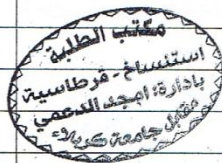 مكتب الطلبة
استنساخ - قرطاسية
بادارة: امجد الدعمي
مقابل جامعة كربلاء